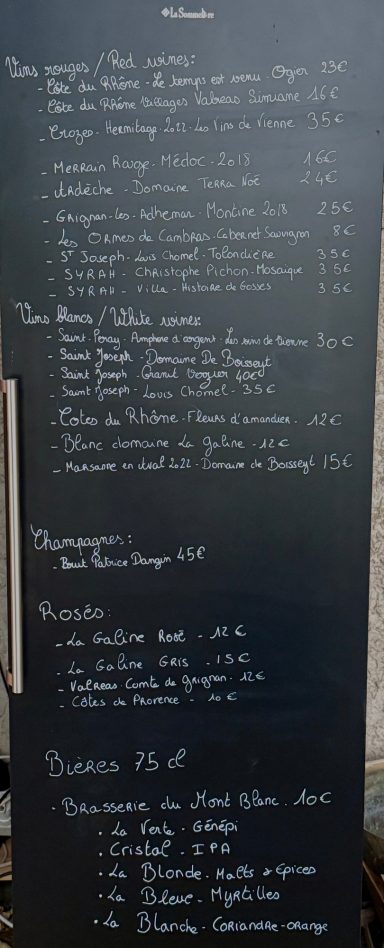 La Sommelière
Vins rouges / Red wines:
- Côte du Rhône - Le temps est venu - Ogier 23€
- Côte du Rhône Villages Valreas Simiane 16€
- Crozes - Hermitage - 2022 - Les Vins de Vienne 35€
- Merrain Rouge - Médoc - 2018 16€
- Ardèche - Domaine Terra Noé 24€
- Grignan-Les-Adhemar - Montine 2018 25€
- Les Ormes de Cambras - Cabernet Sauvignon 8€
- St Joseph - Louis Chomel - Tolondière 35€
- SYRAH - Christophe Pichon - Mosaique 35€
- SYRAH - Villa - Histoire de Gosses 35€
Vins blancs / White wines:
- Saint-Peray - Amphore d'argent - Les vins de Vienne 30€
- Saint Joseph - Domaine De Boisseyt
- Saint Joseph - Granit Vogier 40€
- Saint Joseph - Louis Chomel - 35€
- Cotes du Rhône - Fleurs d'amandier - 12€
- Blanc domaine La Galine - 12€
- Marsanne en Aval 2022 - Domaine de Boisseyt 15€
Champagnes:
- Brut Patrice Dangin 45€
Rosés:
- La Galine Rosé - 12€
- La Galine Gris - 15€
- Valreas - Comte de Grignan - 12€
- Côtes de Provence - 10€
Bières 75 cl
• Brasserie du Mont Blanc - 10€
• La Verte - Génépi
• Cristal - IPA
• La Blonde - Malts & Epices
• La Bleue - Myrtilles
• La Blanche - Coriandre - Orange